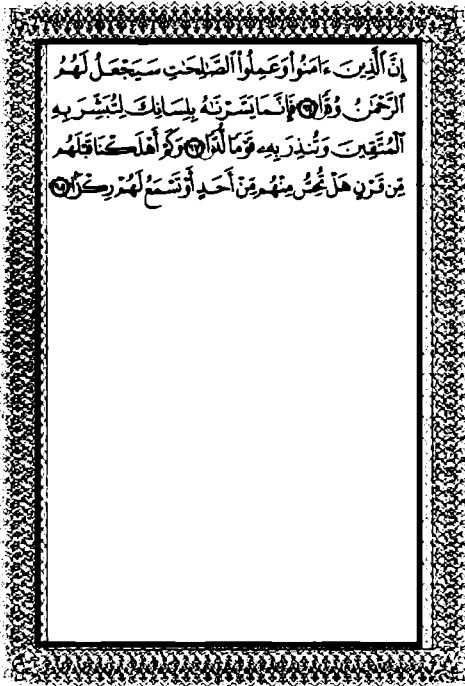 إِنَّ ٱلَّذِينَ ءَامَنُوا۟ وَعَمِلُوا۟ ٱلصَّـٰلِحَـٰتِ سَيَجْعَلُ لَهُمُ
ٱلرَّحْمَـٰنُ وُدًّا ٩٦ فَإِنَّمَا يَسَّرْنَـٰهُ بِلِسَانِكَ لِتُبَشِّرَ بِهِ
ٱلْمُتَّقِينَ وَتُنذِرَ بِهِۦ قَوْمًا لُّدًّا ٩٧ وَكَمْ أَهْلَكْنَا قَبْلَهُم
مِّن قَرْنٍ هَلْ تُحِسُّ مِنْهُم مِّنْ أَحَدٍ أَوْ تَسْمَعُ لَهُمْ رِكْزًۢا ٩٨